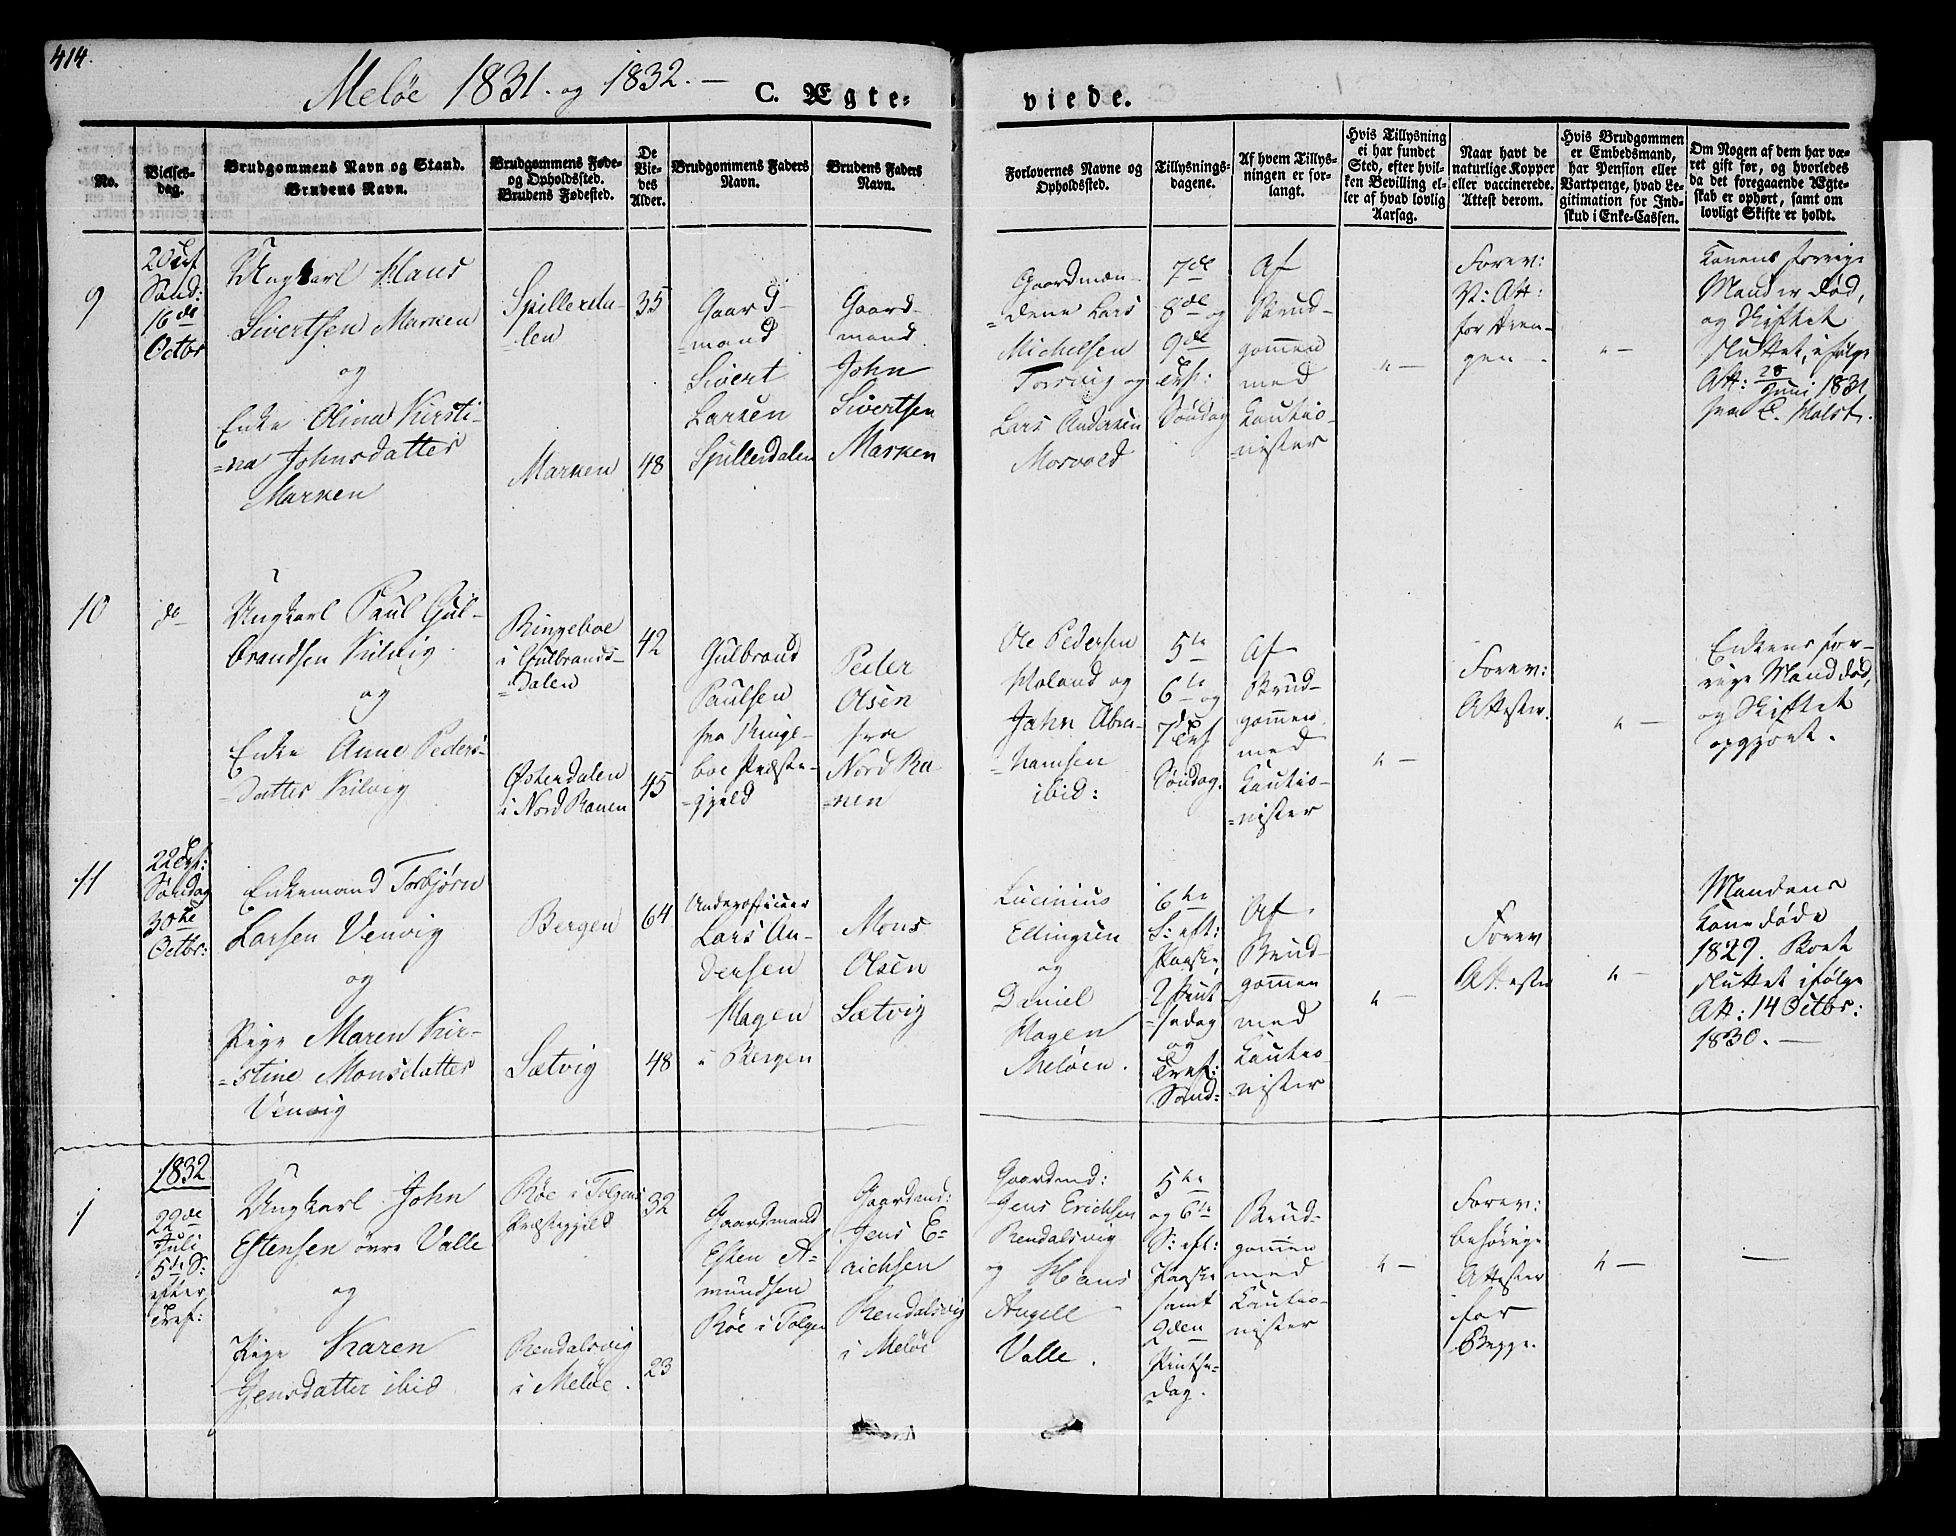 414.
Meløe 1831. og 1832. —
C. Ægte=
viede.
No.
Vielses-
dag.
Brudgommens Navn og Stand.
Brudens Navn.
Brudgommens Føde-
og Opholdssted.
Brudens Fødested.
De
Vie-
des
Alder.
Brudgommens Faders
Navn.
Brudens Faders
Navn.
Forlovernes Navne og
Opholdssted.
Tillysnings-
dagene.
Af hvem Tillys-
ningen er for-
langt.
Hvis Tillysning
ei har fundet
Sted, efter hvil-
ken Bevilling el-
ler af hvad lovlig
Aarsag.
Naar havt de
naturlige Kopper
eller vaccinerede.
Attest derom.
Hvis Brudgommen
er Embedsmand,
har Pension eller
Vartpenge, hvad Le-
gitimation for Ind-
skud i Enke-Cassen.
Om Nogen af dem har væ-
ret gift før, og hvorledes
da det foregaaende Ægte-
skab er ophørt, samt om
lovligt Skifte er holdt.
9
Sønd:
16de
Octbr
Ungkarl Hans
Sivertsen Marken
og
Enke Olina Kirsti-
=na Johnsdatter
Marken
Spillerda-
=len
Marken
35
48
Gaard-
=mand
Sivert
Larsen
Spillerdalen
Gaard-
mand
John
Sivertsen
Marken
Gaardmæn-
=dene Lars
Michelsen
Torsvig og
Lars Andersen
Mosvold
7de
8de og
9de
Søndag
Af
Brud-
gommen
med
Kautio-
=nister
"—
Forev:
V: Att:
for Dren-
gen —.
"—
Konens forrige
Mand er død,
og Skiftet
sluttet, ifølge
Att: 28 Juni 1831
fra C. Holst.
10
do
Ungkarl Paul Gul-
brandsen Kilvig
og
Enke Anne Peders-
=datter Kilvig
Ringeboe
i Gulbrands-
=dalen
Østerdalen
i Nord Ranen
42
45
Gulbrand
Paulsen
fra Ringe-
boe Præste-
=gjeld
Peder
Olsen
fra
Nord Ra-
=nen
Ole Pedersen
Holand og
John Abra-
=hamsen
ibid:
5te
6te og
7de
Søndag.
Af
Brud-
gommen
med
Kautio-
=nister
"—
Forev:
Attester.
"—
Enkens for-
rige Mand død,
og Skiftet
opgjort.
11
Søndag
30te
Octbr:
Enkemand Torbjørn
Larsen Venvig
og
Pige Maren Kir-
=stine Monsdatter
Venvig
Bergen
Sætvig
64
48
Underofficeer
Lars An-
dersen
Hagen
i Bergen
Mons
Olsen
Sætvig
Lucinius
Ellingsen
og
Daniel
Hagen
Meløen.
6te
S: eft:
Paaske
2 Pint
=sedag
og
Tref:
Sønd:
Af
Brud-
gommen
med
Kautio-
=nister
"—
Forev
Attester
"—
Mandens
Kone døde
1829. Boet
sluttet ifølge
Att: 14 Octbr:
1830. —
1832
1
22de
Juli
5te S:
efter
Tref:
Ungkarl John
Estensen øvre Valle
og
Pige Karen
Jensdatter ibid
Røe i Tolgens
Præstegjeld
Rendalsvig
i Meløe.
32
23
Gaardmand
Esten A-
mundsen
Røe i Tolgen
Gaardmd:
Jens E-
richsen
Rendalsvig
i Meløe
Gaardmd:
Jens Erichsen
Rendalsvig
og Hans
Angell
Valle.
5te
og 6te
S: eft:
Paaske
samt
2den
Pintse-
=dag.
Brud-
gommen
med
Kautio-
nister
"—
Forev:
behørige
Attester
for
Begge.
"—
—